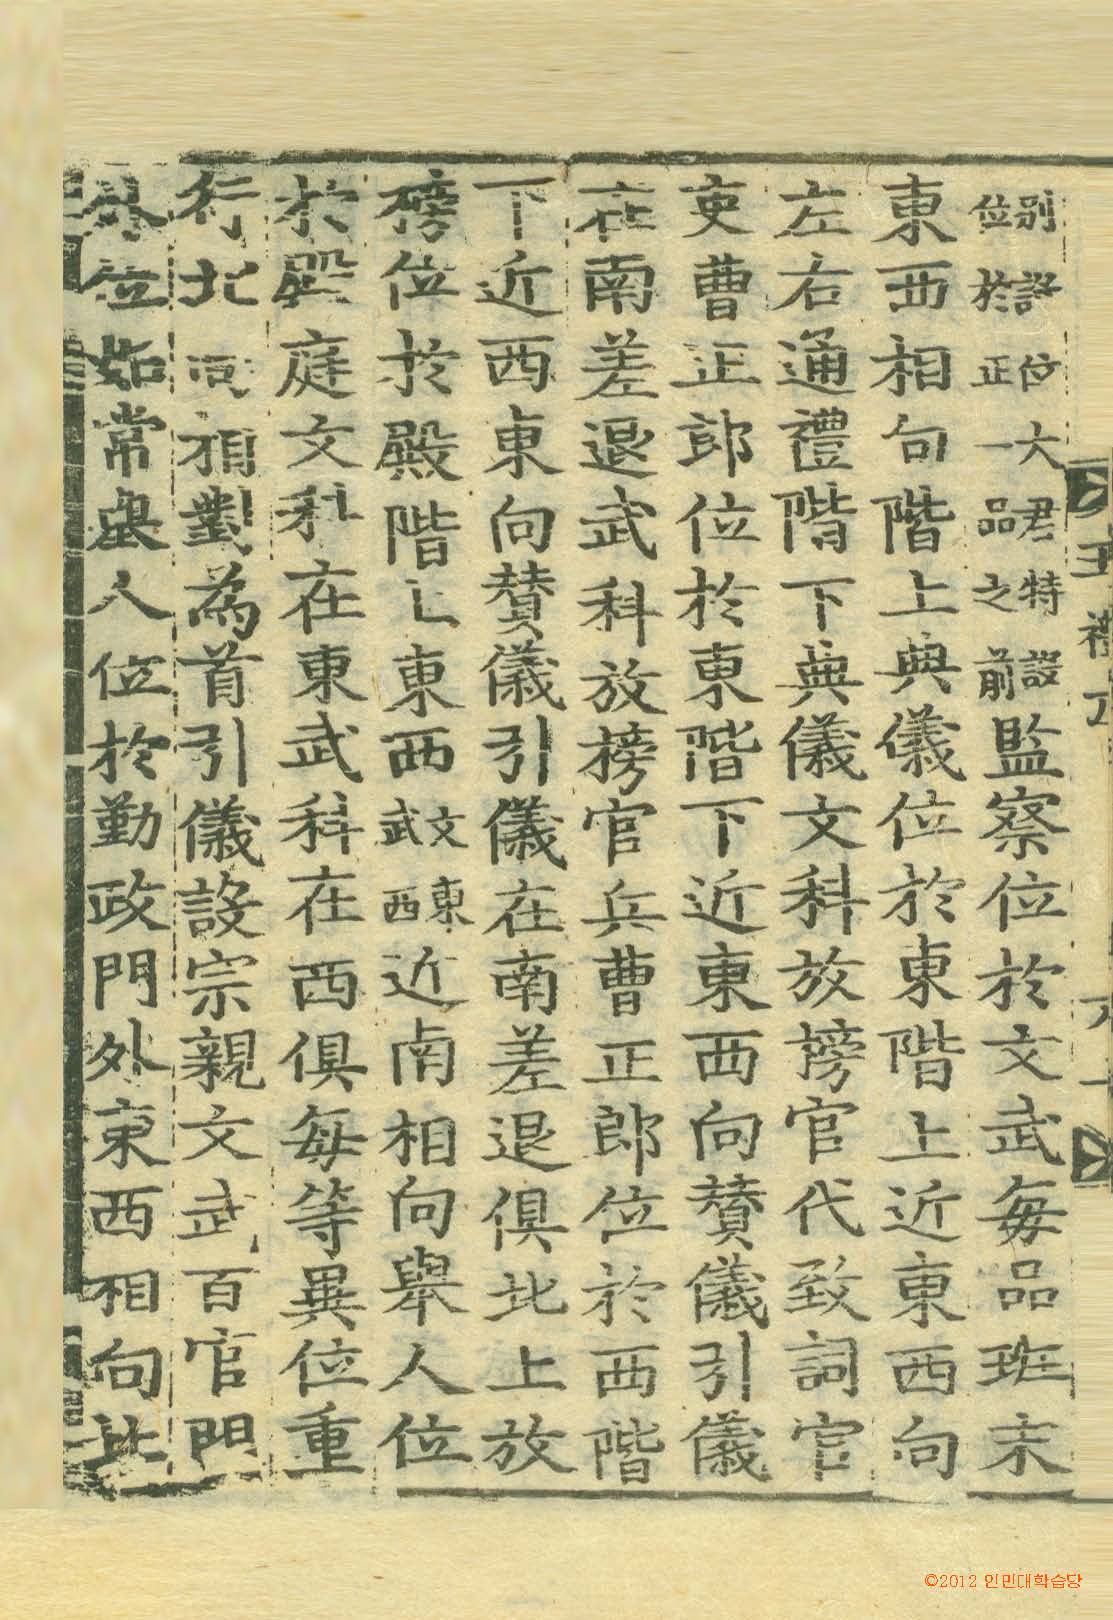 別設位大君特設位於正一品之前監察位於文武每品班末
東西相向階上典儀位於東階上近東西向
左右通禮階下典儀文科放榜官代致詞官
吏曹正郎位於東階下近東西向贊儀引儀
在南差退武科放榜官兵曹正郎位於西階
下近西東向贊儀引儀在南差退俱北上放
榜位於殿階上東西文東武西近南相向舉人位
於殿庭文科在東武科在西俱每等異位重
行北向相對為首引儀設宗親文武百官門
外位如常舉人位於勤政門外東西相向北
五禮
©2012 인민대학습당